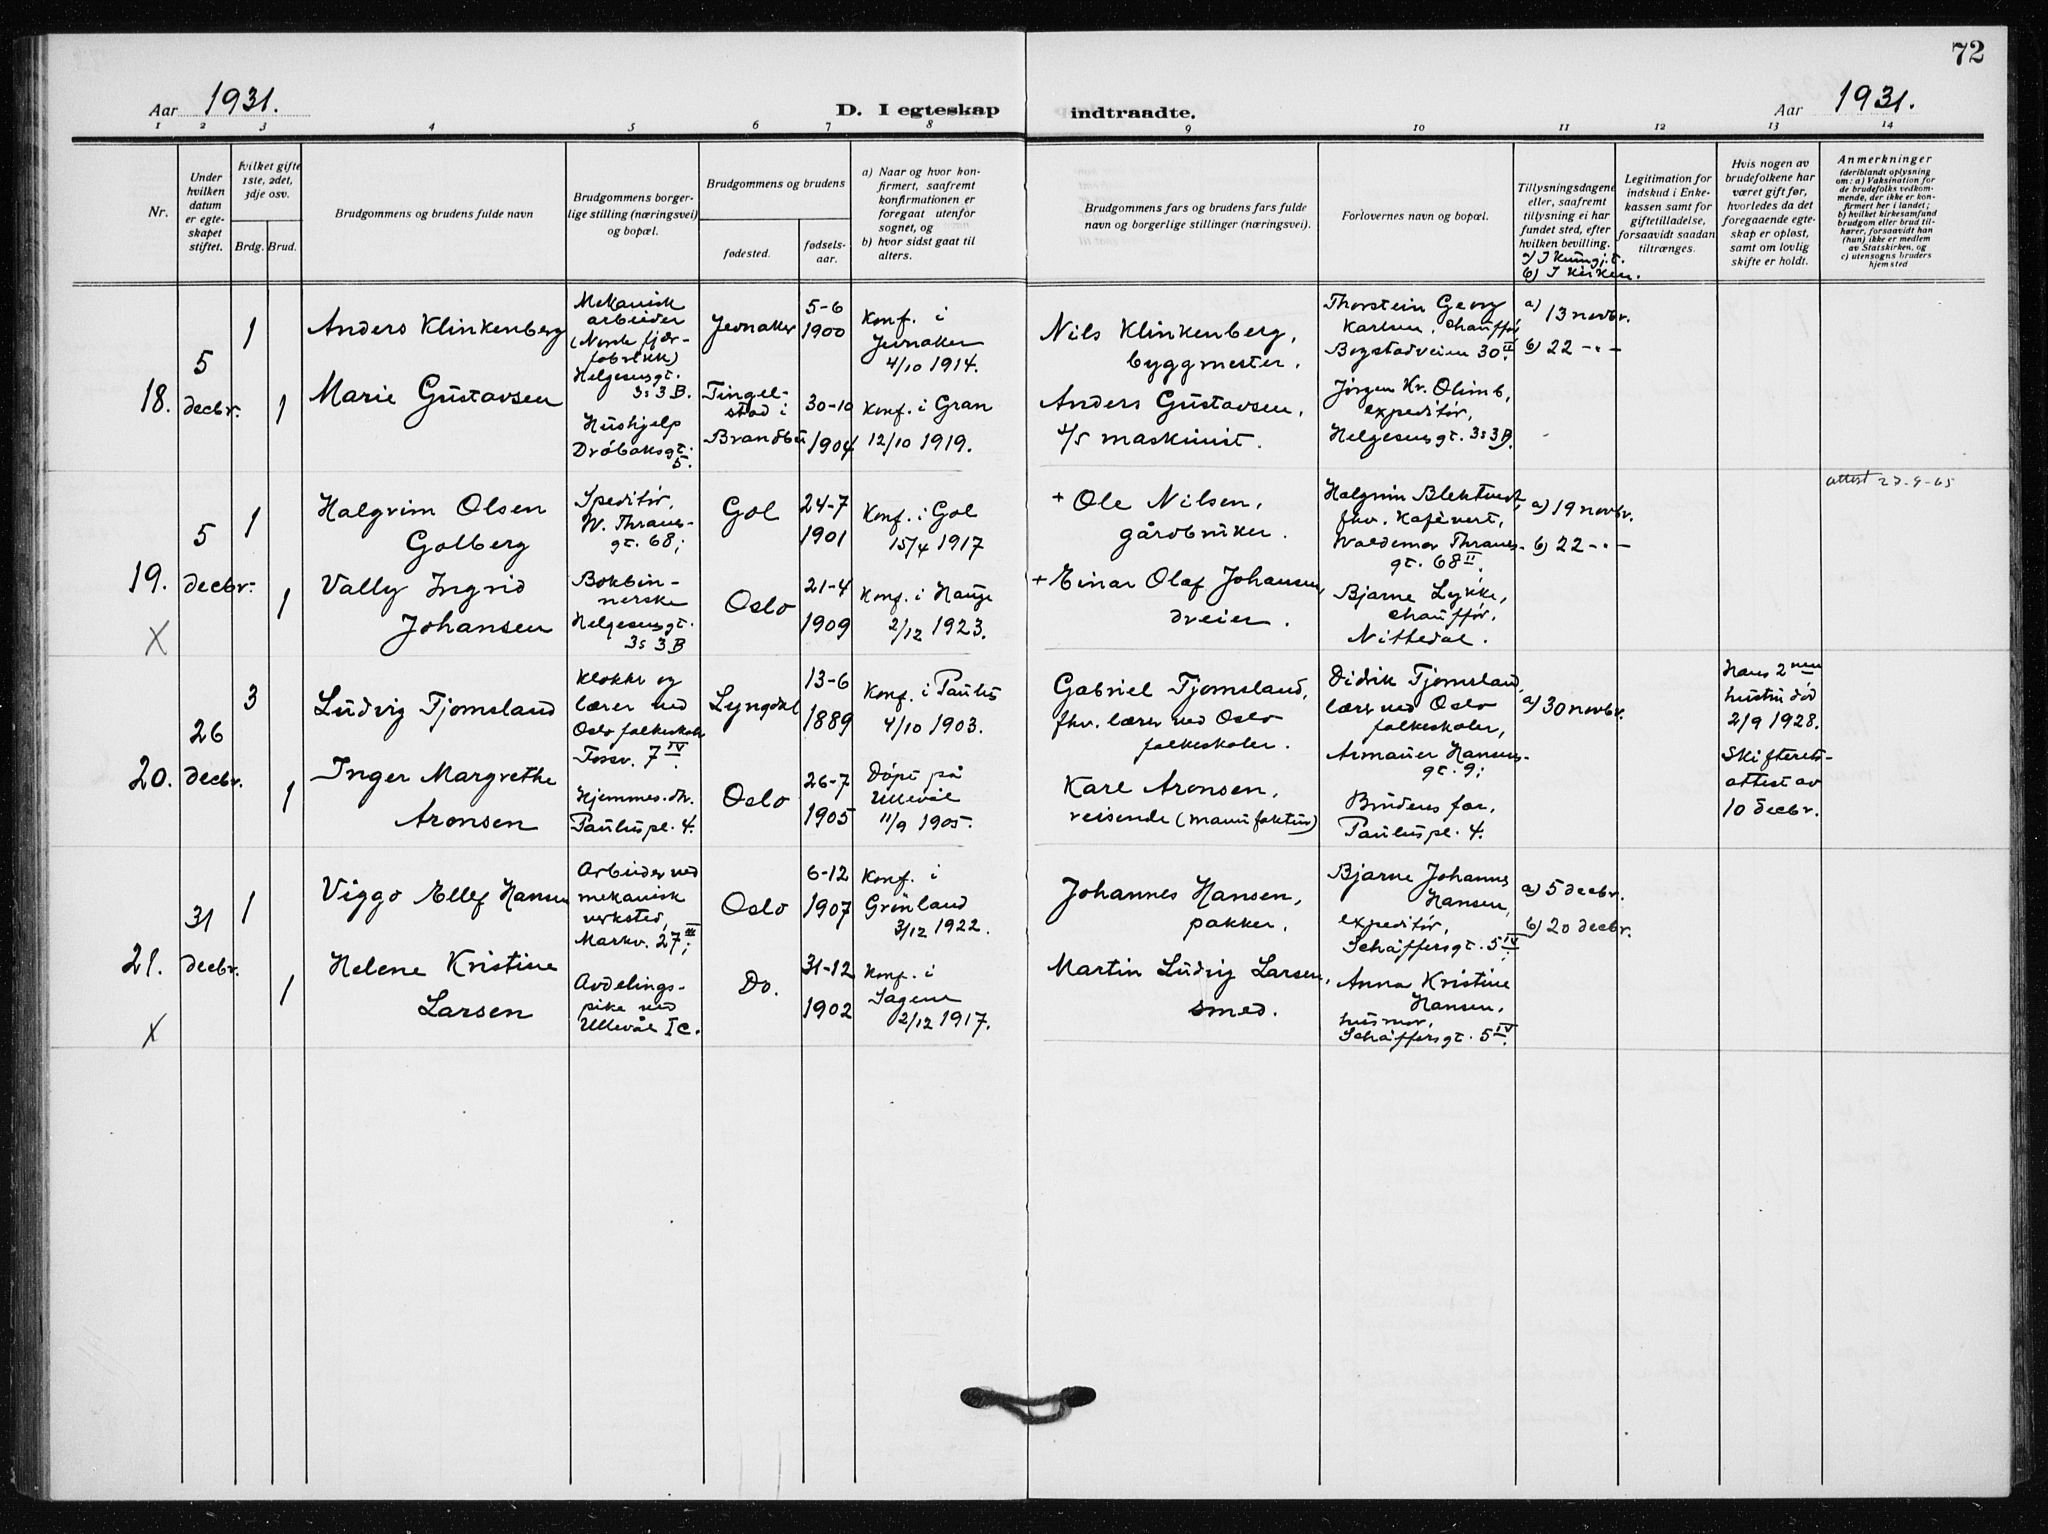 72
Aar 1931.
D. I egteskap indtraadte.
Aar 1931.
1 2 3 4 5 6 7 8 9 10 11 12 13 14
Nr.
Under hvilken datum er egteskapet stiftet.
Hvilket gifte 1ste, 2det, 3dje osv.
Brdg. Brud.
Brudgommens og brudens fulde navn
Brudgommens borgerlige stilling (næringsvei) og bopæl.
Brudgommens og brudens
fødested.
fødselsaar.
a) Naar og hvor konfirmert, saafremt konfirmationen er foregaat utenfor sognet, og
b) hvor sidst gaat til alters.
Brudgommens fars og brudens fars fulde navn og borgerlige stillinger (næringsvei).
Forlovernes navn og bopæl.
Tillysningsdagene eller, saafremt tillysning ei har fundet sted, efter hvilken bevilling.
a) I Kungj.t.
b) I Kirken.
Legitimation for indskud i Enkekassen samt for giftetilladelse, forsaavidt saadan tiltrænges.
Hvis nogen av brudefolkene har været gift før, hvorledes da det foregaaende egteskap er opløst, samt om lovlig skifte er holdt.
Anmerkninger (deriblandt oplysning om: a) Vaksination for de brudefolks vedkommende, der ikke er konfirmert her i landet; b) hvilket kirkesamfund brudgom eller brud tilhører, forsaavidt han (hun) ikke er medlem av Statskirken, og c) utensogns bruders hjemsted
18.
5
decbr.
1
Anders Klinkenberg
Mekanisk
arbeider
(Norsk fjær-
fabrikk)
Helgesensgt.
3s 3 B.
Jevnaker
5-6
1900
Konf. i
Jevnaker
4/10 1914.
Nils Klinkenberg,
byggmester.
Thorstein Georg
Karlsen, chauffør,
Bogstadveien 30 II.
a) 13 novbr.
b) 22 -"-
1
Marie Gustavsen
Hushjelp
Drøbaksgt.
5.
Tingel-
stad i
Brandbu
30-10
1904
Konf. i Gran
12/10 1919.
Anders Gustavsen,
maskinist.
Jørgen Kr. Olimb,
expeditør,
Helgesensgt. 3s 3 B.
19.
X
5
decbr.
1
Halgrim Olsen
Golberg
Speditør,
W. Thranes-
gt. 68;
Gol
24-7
1901
Konf. i Gol
15/4 1917
+ Ole Nilsen,
gårdbruker.
Halgrim Blektvedt,
fhv. Kafévert,
Waldemar Thranes-
gt. 68 II.
a) 19 novbr.
b) 22 -"-
attest 27-9-65
1
Vally Ingrid
Johansen
Bokbin-
nerske
Helgesensgt.
3s 3 B
Oslo
21-4
1909
Konf. i Hauge
2/12 1923.
+ Einar Olaf Johansen,
dreier.
Bjarne Lykke,
chauffør,
Nittedal.
20.
26
decbr.
3
Ludvig Tjomsland
Klokker og
lærer ved
Oslo folkeskoler
Torsv. 7 IV.
Lyngdal
13-6
1889
Konf. i Paulus
4/10 1903.
Gabriel Tjomsland,
fhv. lærer ved Oslo
folkeskoler.
Didrik Tjomsland,
lærer ved Oslo
folkeskoler,
Armauer Hansens-
gt. 9;
a) 30 novbr.
Hans 2nen
hustru død
2/9 1928.
Skifteretts-
attest av
10 decbr.
1
Inger Margrethe
Aronsen
Hjemmev. dtr.
Pauluspl. 4.
Oslo
26-7
1905
Døpt på
Ullevål
11/9 1905.
Karl Aronsen,
reisende (manufaktur)
Brudens far,
Pauluspl. 4.
21.
X
31
decbr.
1
Viggo Ellef Hansen
Arbeider ved
mekanisk
verksted,
Markv. 27 III;
Oslo
6-12
1907
Konf. i
Grønland
3/12 1922.
Johannes Hansen,
pakker.
Bjarne Johannes
Hansen,
expeditør,
Schäffersgt. 5 IV.
a) 5 decbr.
b) 20 decbr.
1
Helene Kristine
Larsen
Avdelings-
pike ved
Ullevål I c.
Do.
31-12
1902
Konf. i
Sagene
2/12 1917.
Martin Ludvig Larsen,
smed.
Anna Kristine
Hansen,
husmor,
Schäffersgt. 5 IV.